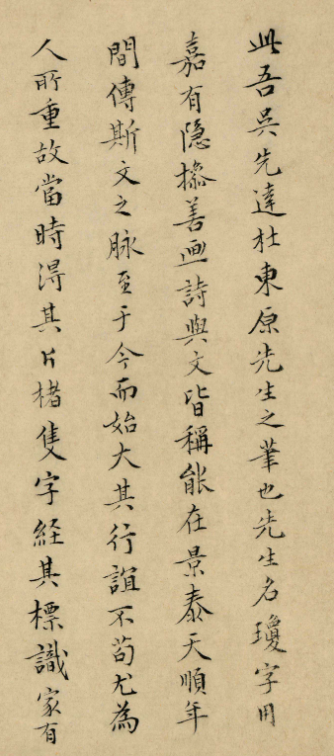 此吾吳先達杜東原先生之筆也先生名瓊字用
嘉有隐操善画詩與文皆稱能在景泰天順年
間傳斯文之脉至于今而始大其行誼不苟尤為
人所重故當時淂其片楮隻字経其標識家有